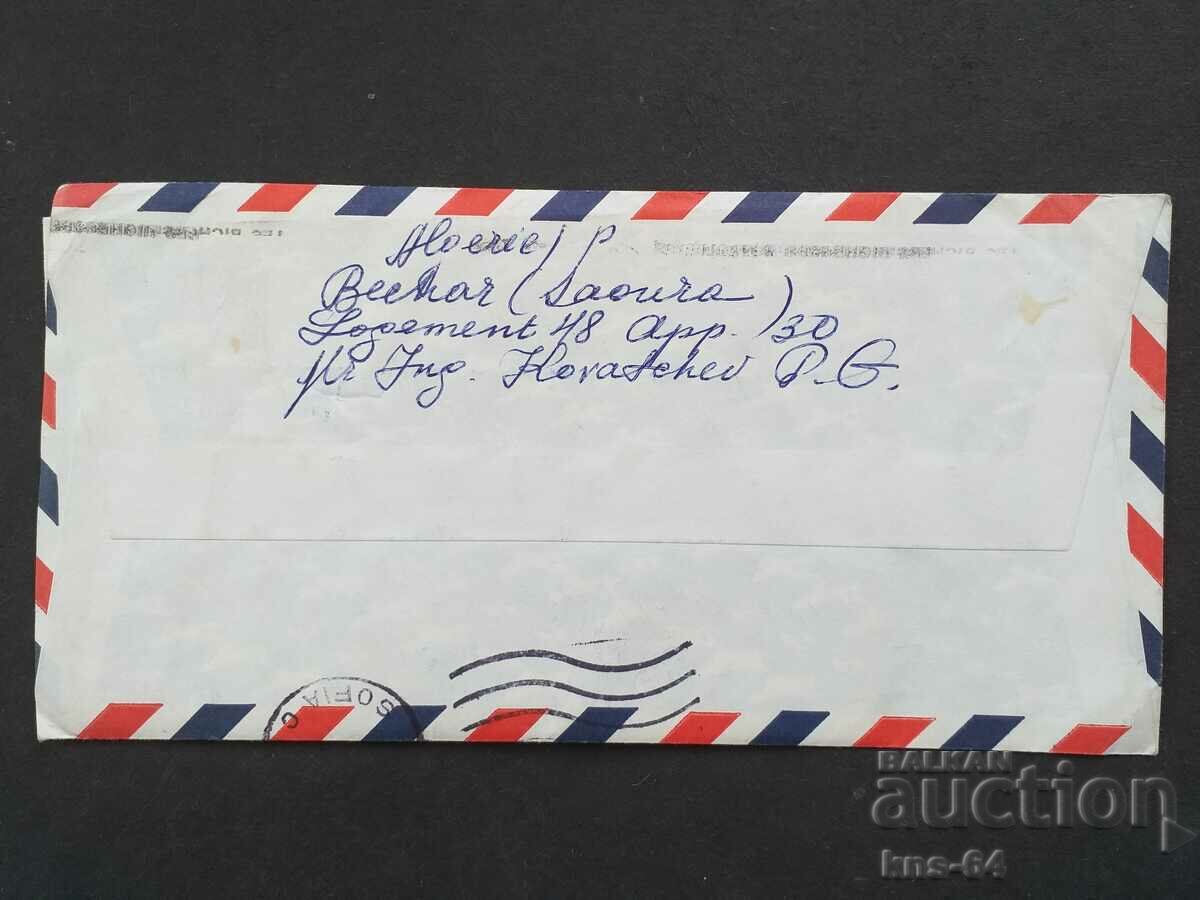 Algerie / P
Bechar (Saoura)
Logement 48 app. 30
pr Ing. Kovatchev P. G.
SOFIA C
BALKAN
auction
kns-64